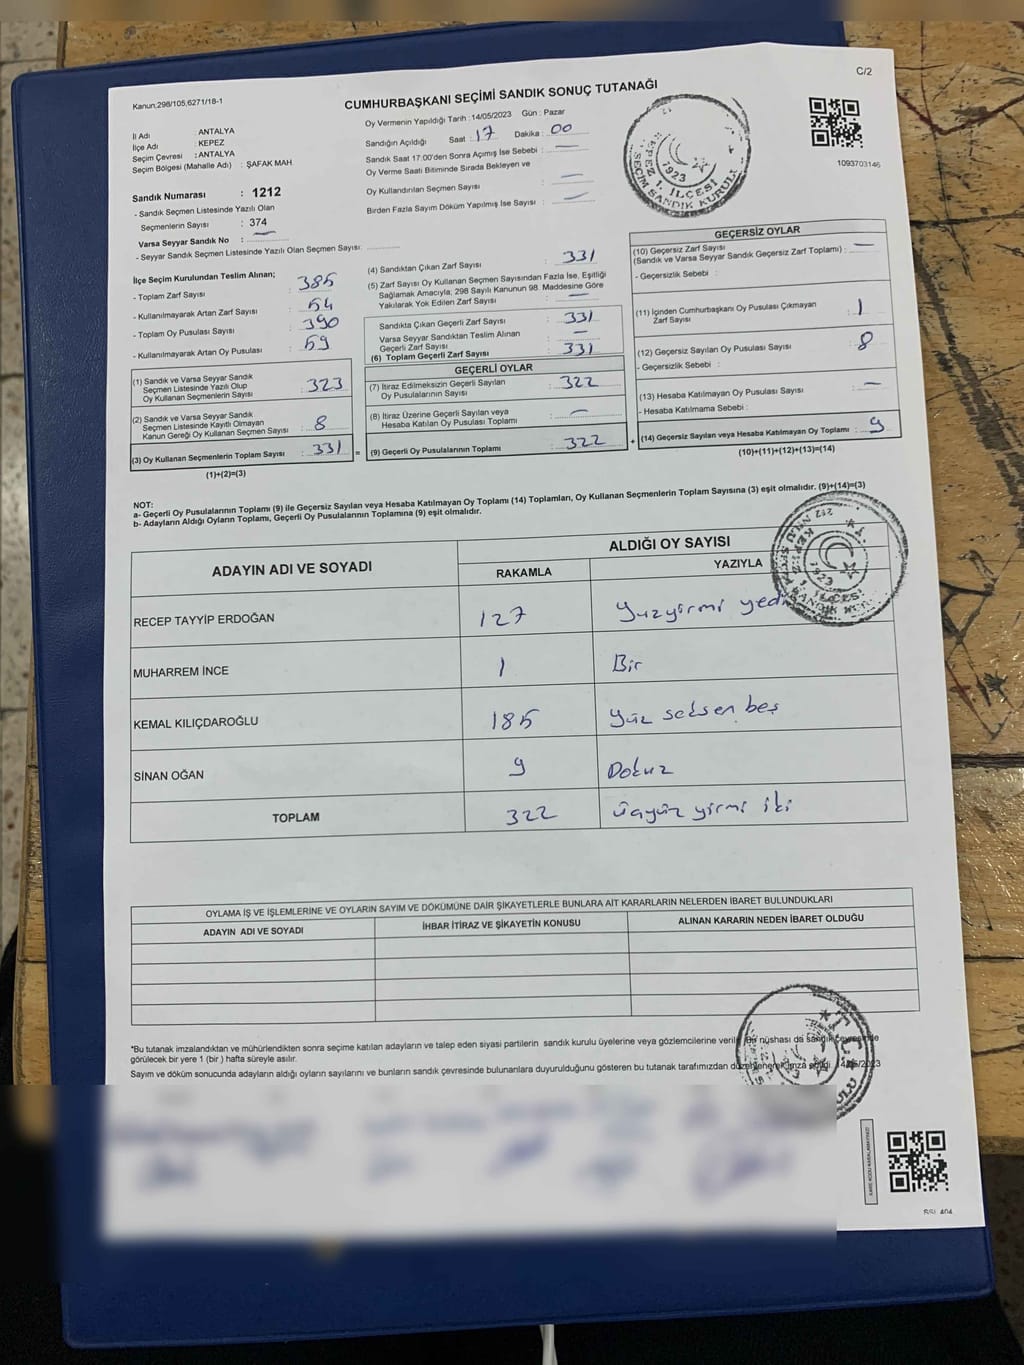 C/2
Kanun;298/105,6271/18-1
CUMHURBAŞKANI SEÇİMİ SANDIK SONUÇ TUTANAĞI
İl Adı : ANTALYA
İlçe Adı : KEPEZ
Seçim Çevresi : ANTALYA
Seçim Bölgesi (Mahalle Adı) : ŞAFAK MAH
Sandık Numarası : 1212
- Sandık Seçmen Listesinde Yazılı Olan
Seçmenlerin Sayısı : 374
Varsa Seyyar Sandık No : —
- Seyyar Sandık Seçmen Listesinde Yazılı Olan Seçmen Sayısı:
Oy Vermenin Yapıldığı Tarih :14/05/2023 Gün : Pazar
Sandığın Açıldığı Saat : 17 Dakika : 00
Sandık Saat 17:00'den Sonra Açımış İse Sebebi : —
Oy Verme Saati Bitiminde Sırada Bekleyen ve
Oy Kullandırılan Seçmen Sayısı : —
Birden Fazla Sayım Döküm Yapılmış İse Sayısı : —
KEPEZ 1. İLÇESİ
1923
SEÇİM SANDIK KURULU
1093703146
İlçe Seçim Kurulundan Teslim Alınan;
- Toplam Zarf Sayısı : 385
- Kullanılmayarak Artan Zarf Sayısı : 54
- Toplam Oy Pusulası Sayısı : 390
- Kullanılmayarak Artan Oy Pusulası : 59
(1) Sandık ve Varsa Seyyar Sandık
Seçmen Listesinde Yazılı Olup
Oy Kullanan Seçmenlerin Sayısı : 323
(2) Sandık ve Varsa Seyyar Sandık
Seçmen Listesinde Kayıtlı Olmayan
Kanun Gereği Oy Kullanan Seçmen Sayısı : 8
(3) Oy Kullanan Seçmenlerin Toplam Sayısı : 331 =
(1)+(2)=(3)
(4) Sandıktan Çıkan Zarf Sayısı : 331
(5) Zarf Sayısı Oy Kullanan Seçmen Sayısından Fazla İse, Eşitliği
Sağlamak Amacıyla, 298 Sayılı Kanunun 98. Maddesine Göre
Yakılarak Yok Edilen Zarf Sayısı : —
Sandıkta Çıkan Geçerli Zarf Sayısı : 331
Varsa Seyyar Sandıktan Teslim Alınan
Geçerli Zarf Sayısı : —
(6) Toplam Geçerli Zarf Sayısı : 331
GEÇERLİ OYLAR
(7) İtiraz Edilmeksizin Geçerli Sayılan
Oy Pusulası Toplamı : 322
(8) İtiraz Üzerine Geçerli Sayılan veya
Hesaba Katılan Oy Pusulası Toplamı : —
(9) Geçerli Oy Pusulalarının Toplamı : 322 +
GEÇERSİZ OYLAR
(10) Geçersiz Zarf Sayısı
(Sandık ve Varsa Seyyar Sandık Geçersiz Zarf Toplamı) : —
- Geçersizlik Sebebi :
(11) İçinden Cumhurbaşkanı Oy Pusulası Çıkmayan
Zarf Sayısı : 1
(12) Geçersiz Sayılan Oy Pusulası Sayısı : 8
- Geçersizlik Sebebi :
(13) Hesaba Katılmayan Oy Pusulası Sayısı : —
- Hesaba Katılmama Sebebi :
(14) Geçersiz Sayılan veya Hesaba Katılmayan Oy Toplamı : 9
(10)+(11)+(12)+(13)=(14)
NOT:
a- Geçerli Oy Pusulalarının Toplamı (9) ile Geçersiz Sayılan veya Hesaba Katılmayan Oy Toplamı (14) Toplamları, Oy Kullanan Seçmenlerin Toplam Sayısına (3) eşit olmalıdır. (9)+(14)=(3)
b- Adayların Aldığı Oyların Toplamı, Geçerli Oy Pusulalarının Toplamına (9) eşit olmalıdır.
ADAYIN ADI VE SOYADI
ALDIĞI OY SAYISI
RAKAMLA YAZIYLA
RECEP TAYYİP ERDOĞAN 127 Yüzyirmi yedi
MUHARREM İNCE 1 Bir
KEMAL KILIÇDAROĞLU 185 Yüz seksen beş
SİNAN OĞAN 9 Dokuz
TOPLAM 322 üçyüz yirmi iki
OYLAMA İŞ VE İŞLEMLERİNE VE OYLARIN SAYIM VE DÖKÜMÜNE DAİR ŞİKAYETLERLE BUNLARA AİT KARARLARIN NELERDEN İBARET BULUNDUKLARI
ADAYIN ADI VE SOYADI İHBAR İTİRAZ VE ŞİKAYETİN KONUSU ALINAN KARARIN NEDEN İBARET OLDUĞU
*Bu tutanak imzalandıktan ve mühürlendikten sonra seçime katılan adayların ve talep eden siyasi partilerin sandık kurulu üyelerine veya gözlemcilerine verilir, bir nüshası da sandık çevresinde
görülecek bir yere 1 (bir ) hafta süreyle asılır.
Sayım ve döküm sonucunda adayların aldığı oyların sayılarını ve bunların sandık çevresinde bulunanlara duyurulduğunu gösteren bu tutanak tarafımızdan düzenlenerek imza edildi. 14/05/2023